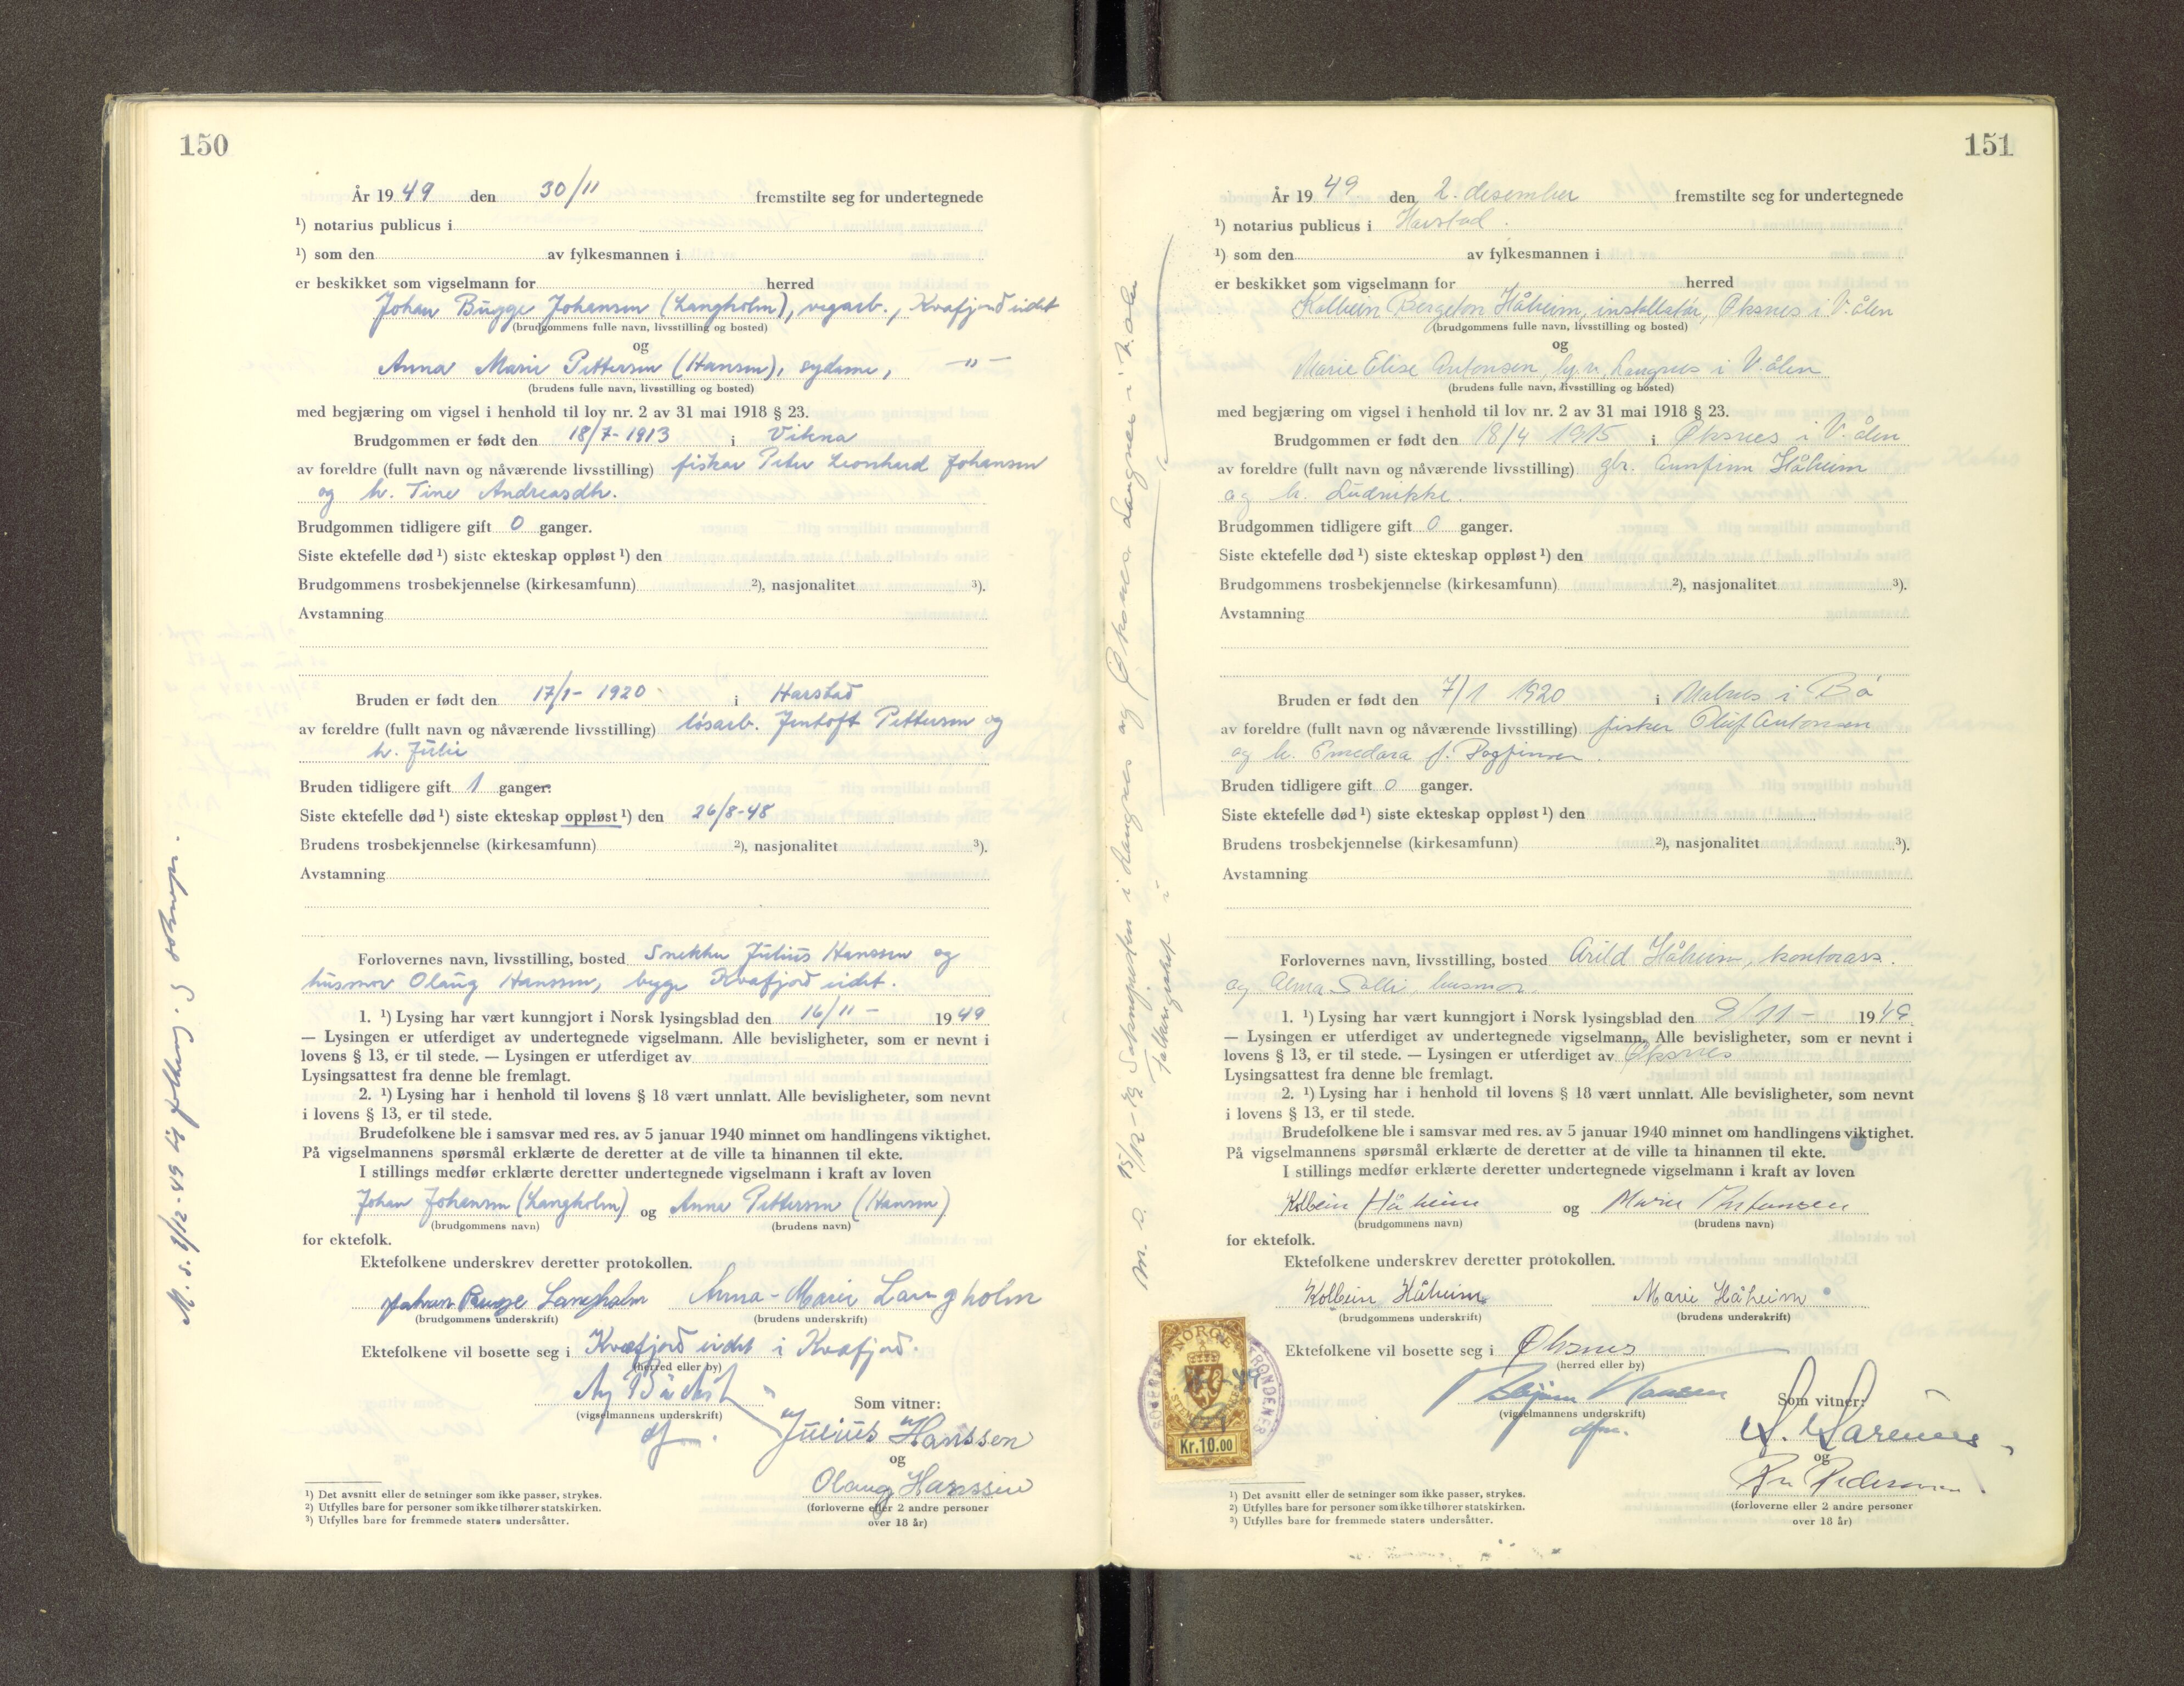 150
År 1949 den 30/11 fremstilte seg for undertegnede
¹) notarius publicus i
¹) som den av fylkesmannen i
er beskikket som vigselmann for herred
Johan Bugge Johansen (Langholm), vegarb., Kvæfjord indst
(brudgommens fulle navn, livsstilling og bosted)
og
Anna Marie Pettersen (Hansen), sydame, —"—
(brudens fulle navn, livsstilling og bosted)
med begjæring om vigsel i henhold til lov nr. 2 av 31 mai 1918 § 23.
Brudgommen er født den 18/7-1913 i Vikna
av foreldre (fullt navn og nåværende livsstilling) fisker Peter Leonhard Johansen
og h. Tine Andreasdh.
Brudgommen tidligere gift 0 ganger.
Siste ektefelle død ¹) siste ekteskap oppløst ¹) den
Brudgommens trosbekjennelse (kirkesamfunn) ²), nasjonalitet ³).
Avstamning
Bruden er født den 17/1-1920 i Harstad
av foreldre (fullt navn og nåværende livsstilling) løsarb. Jentoft Pettersen og
h. Julie
Bruden tidligere gift 1 ganger.
Siste ektefelle død ¹) siste ekteskap oppløst ¹) den 26/8-48
Brudens trosbekjennelse (kirkesamfunn) ²), nasjonalitet ³).
Avstamning
Forlovernes navn, livsstilling, bosted Snekker Julius Hanssen og
husmor Olaug Hanssen, begge Kvæfjord indst.
1. ¹) Lysing har vært kunngjort i Norsk lysingsblad den 16/11 - 1949
— Lysingen er utferdiget av undertegnede vigselmann. Alle bevisligheter, som er nevnt i
lovens § 13, er til stede. — Lysingen er utferdiget av
Lysingsattest fra denne ble fremlagt.
2. ¹) Lysing har i henhold til lovens § 18 vært unnlatt. Alle bevisligheter, som nevnt
i lovens § 13, er til stede.
Brudefolkene ble i samsvar med res. av 5 januar 1940 minnet om handlingens viktighet.
På vigselmannens spørsmål erklærte de deretter at de ville ta hinannen til ekte.
I stillings medfør erklærte deretter undertegnede vigselmann i kraft av loven
Johan Johansen (Langholm) og Anna Pettersen (Hansen)
(brudgommens navn) (brudens navn)
for ektefolk.
Ektefolkene underskrev deretter protokollen.
Johan Bugge Langholm Anna-Marie Langholm
(brudgommens underskrift) (brudens underskrift)
Ektefolkene vil bosette seg i Kvæfjord indst i Kvæfjord.
(herred eller by)
(vigselmannens underskrift)
Som vitner:
Julius Hanssen
og
Olaug Hanssen
(forloverne eller 2 andre personer
over 18 år)
¹) Det avsnitt eller de setninger som ikke passer, strykes.
²) Utfylles bare for personer som ikke tilhører statskirken.
³) Utfylles bare for fremmede staters undersåtter.
151
År 1949 den 2. desember fremstilte seg for undertegnede
¹) notarius publicus i Harstad.
¹) som den av fylkesmannen i
er beskikket som vigselmann for herred
Kolbein Bergeton Håheim, installatør, Øksnes i V.ålen
(brudgommens fulle navn, livsstilling og bosted)
og
Marie Elise Antonsen, Langnes i V.ålen
(brudens fulle navn, livsstilling og bosted)
med begjæring om vigsel i henhold til lov nr. 2 av 31 mai 1918 § 23.
Brudgommen er født den 18/4 1915 i Øksnes i V.ålen
av foreldre (fullt navn og nåværende livsstilling) gbr. Arnfinn Håheim
og h. Ludvikke.
Brudgommen tidligere gift 0 ganger.
Siste ektefelle død ¹) siste ekteskap oppløst ¹) den
Brudgommens trosbekjennelse (kirkesamfunn) ²), nasjonalitet ³).
Avstamning
Bruden er født den 7/1 1920 i Malnes i Bø
av foreldre (fullt navn og nåværende livsstilling) fisker Oluf Antonsen
og h. Emedara f. Dagfinsen.
Bruden tidligere gift 0 ganger.
Siste ektefelle død ¹) siste ekteskap oppløst ¹) den
Brudens trosbekjennelse (kirkesamfunn) ²), nasjonalitet ³).
Avstamning
Forlovernes navn, livsstilling, bosted Arild Håheim, kontorass.
og Alma Solli, husmor.
1. ¹) Lysing har vært kunngjort i Norsk lysingsblad den 9/11- 1949
— Lysingen er utferdiget av undertegnede vigselmann. Alle bevisligheter, som er nevnt i
lovens § 13, er til stede. — Lysingen er utferdiget av Øksnes
Lysingsattest fra denne ble fremlagt.
2. ¹) Lysing har i henhold til lovens § 18 vært unnlatt. Alle bevisligheter, som nevnt
i lovens § 13, er til stede.
Brudefolkene ble i samsvar med res. av 5 januar 1940 minnet om handlingens viktighet.
På vigselmannens spørsmål erklærte de deretter at de ville ta hinannen til ekte.
I stillings medfør erklærte deretter undertegnede vigselmann i kraft av loven
Kolbein Håheim og Marie Antonsen
(brudgommens navn) (brudens navn)
for ektefolk.
Ektefolkene underskrev deretter protokollen.
Kolbein Håheim Marie Håheim
(brudgommens underskrift) (brudens underskrift)
Ektefolkene vil bosette seg i Øksnes
(herred eller by)
(vigselmannens underskrift)
dfm.
Som vitner:
og
Pedersen
(forloverne eller 2 andre personer
over 18 år)
NORGE
Kr.10.00
¹) Det avsnitt eller de setninger som ikke passer, strykes.
²) Utfylles bare for personer som ikke tilhører statskirken.
³) Utfylles bare for fremmede staters undersåtter.